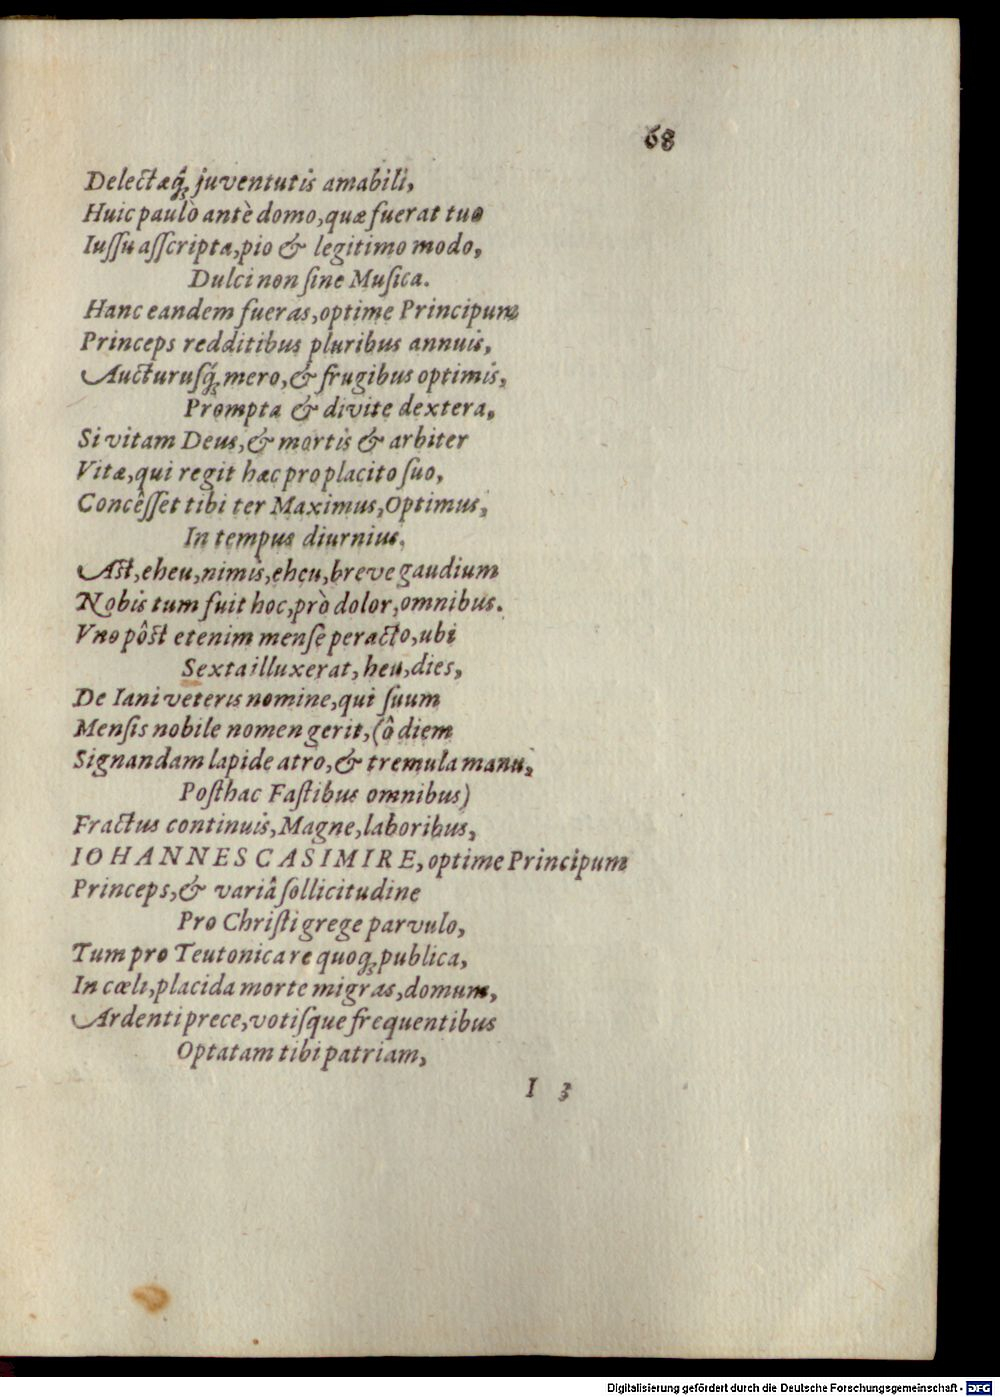 68
Delectæq́; juventutis amabili,
Huic paulò antè domo, quæ fuerat tuo
Iuſſu aſſcripta, pio & legitimo modo,
Dulci non ſine Muſica.
Hanc eandem fueras, optime Principum
Princeps redditibus pluribus annuis,
Aucturuſq́; mero, & frugibus optimis,
Prompta & divite dextera,
Si vitam Deus, & mortis & arbiter
Vitæ, qui regit hæc pro placito ſuo,
Concêſſet tibi ter Maximus, Optimus,
In tempus diurnius.
Aſt, eheu, nimis, eheu, breve gaudium
Nobis tum fuit hoc, prò dolor, omnibus.
Vno pôſt etenim menſe peracto, ubi
Sexta illuxerat, heu, dies,
De Iani veteris nomine, qui ſuum
Menſis nobile nomen gerit, (ô diem
Signandam lapide atro, & tremula manu,
Poſthac Faſtibus omnibus)
Fractus continuis, Magne, laboribus,
IOHANNES CASIMIRE, optime Principum
Princeps, & variâ ſollicitudine
Pro Chriſti grege parvulo,
Tum pro Teutonica re quoq; publica,
In cœli, placida morte migras, domum,
Ardenti prece, votiſque frequentibus
Optatam tibi patriam,
I 3
Digitalisierung gefördert durch die Deutsche Forschungsgemeinschaft - DFG